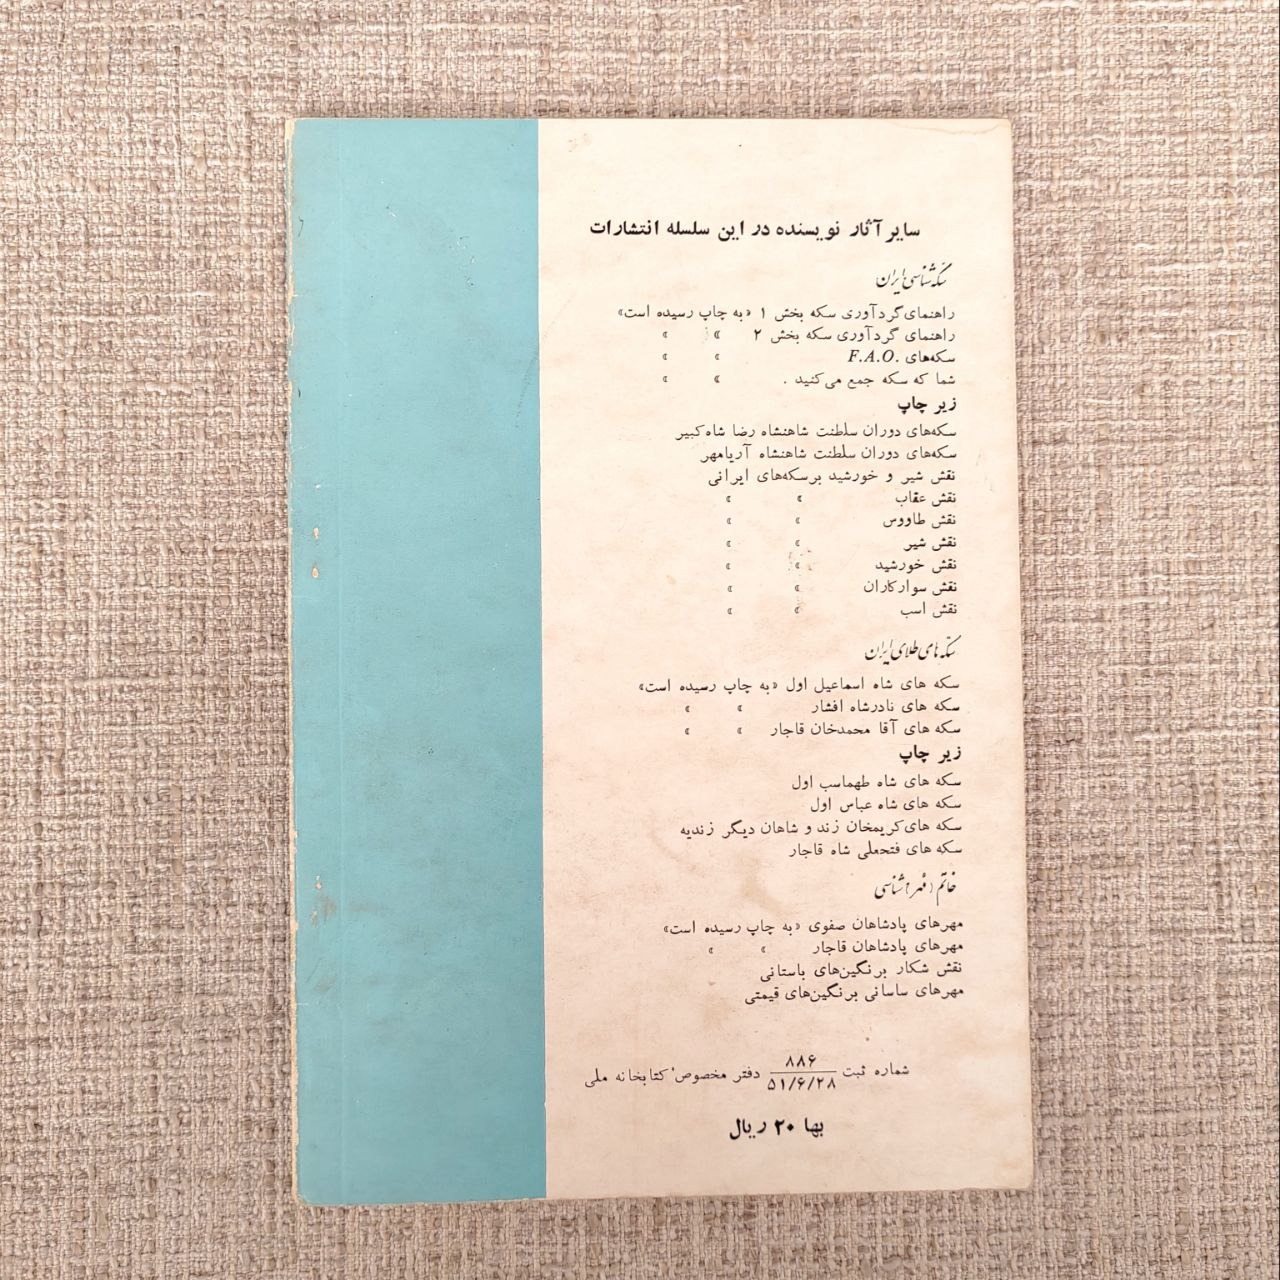 سایر آثار نویسنده در این سلسله انتشارات
سکه‌شناسی ایران
راهنمای گردآوری سکه بخش ۱ «به چاپ رسیده است»
راهنمای گردآوری سکه بخش ۲ » »
سکه‌های F.A.O. » »
شما که سکه جمع می‌کنید . » »
زیر چاپ
سکه‌های دوران سلطنت شاهنشاه رضا شاه کبیر
سکه‌های دوران سلطنت شاهنشاه آریامهر
نقش شیر و خورشید برسکه‌های ایرانی
نقش عقاب » »
نقش طاووس » »
نقش شیر » »
نقش خورشید » »
نقش سوارکاران » »
نقش اسب » »
سکه‌های طلای ایران
سکه های شاه اسماعیل اول «به چاپ رسیده است»
سکه های نادرشاه افشار » »
سکه های آقا محمدخان قاجار » »
زیر چاپ
سکه های شاه طهماسب اول
سکه های شاه عباس اول
سکه های کریمخان زند و شاهان دیگر زندیه
سکه های فتحعلی شاه قاجار
خاتم (مهر) شناسی
مهرهای پادشاهان صفوی «به چاپ رسیده است»
مهرهای پادشاهان قاجار » »
نقش شکار برنگین‌های باستانی
مهرهای ساسانی برنگین‌های قیمتی
شماره ثبت ۸۸۶ / ۵۱/۶/۲۸ دفتر مخصوص کتابخانه ملی
بها ۲۰ ریال